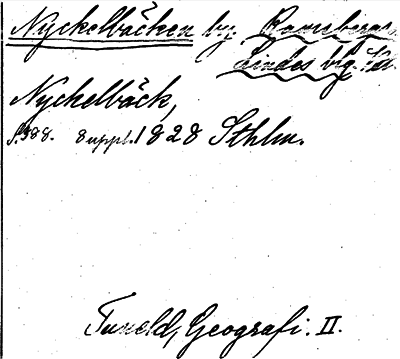 Nyckelbäcken by, Ramsbergs
Lindes brg.
Nyckelbäck,
S. 388. 8 uppl. 1828 Sthlm.
Tuneld, Geografi. II.